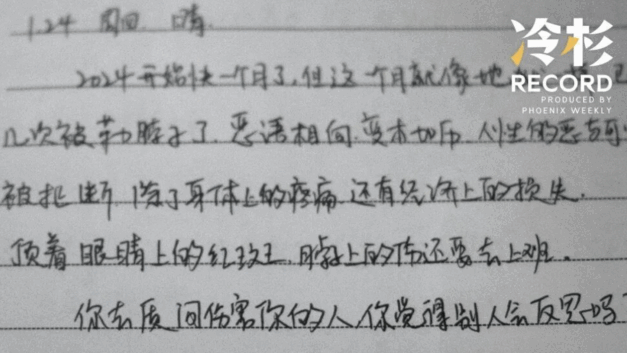 冷杉
RECORD
PRODUCED BY
PHOENIX WEEKLY
1.24 周四 晴
2024开始快一个月了,但这一个月就像地
几次被勒脖子了,恶语相向,变本加厉,人性的恶
被 除了身体上的疼痛,还有经济上的损失.
顶着眼睛上的红 脖子上的伤还要去上班。
你去质问伤害你的人,你觉得别人会反思吗?